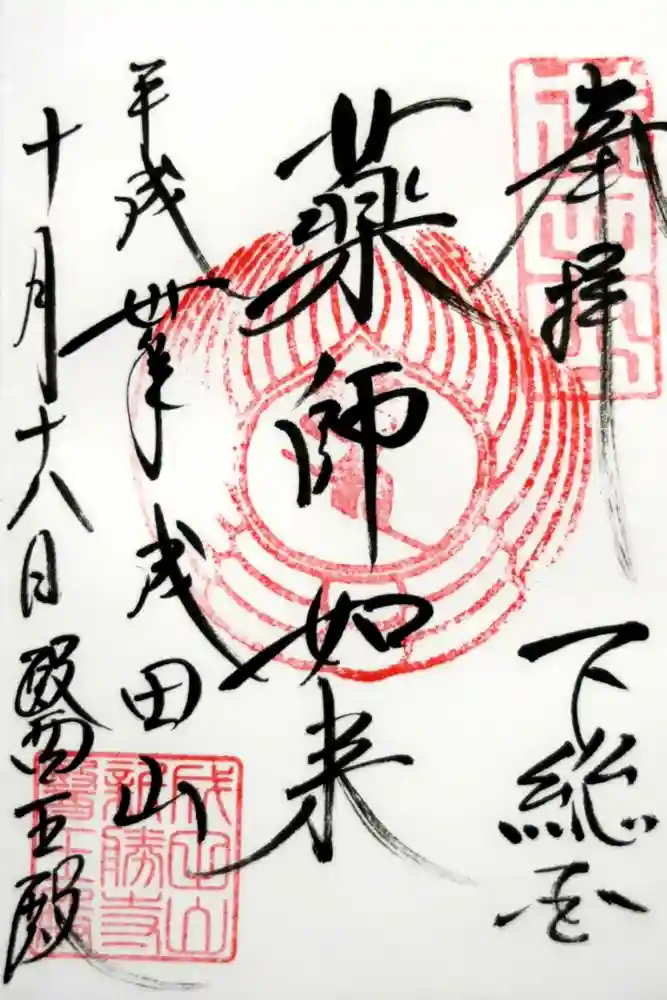 奉拝
下総国
薬師如来
平成卅年 成田山
十月十八日 醫王殿
成田山
成田山
新勝寺
醫王殿